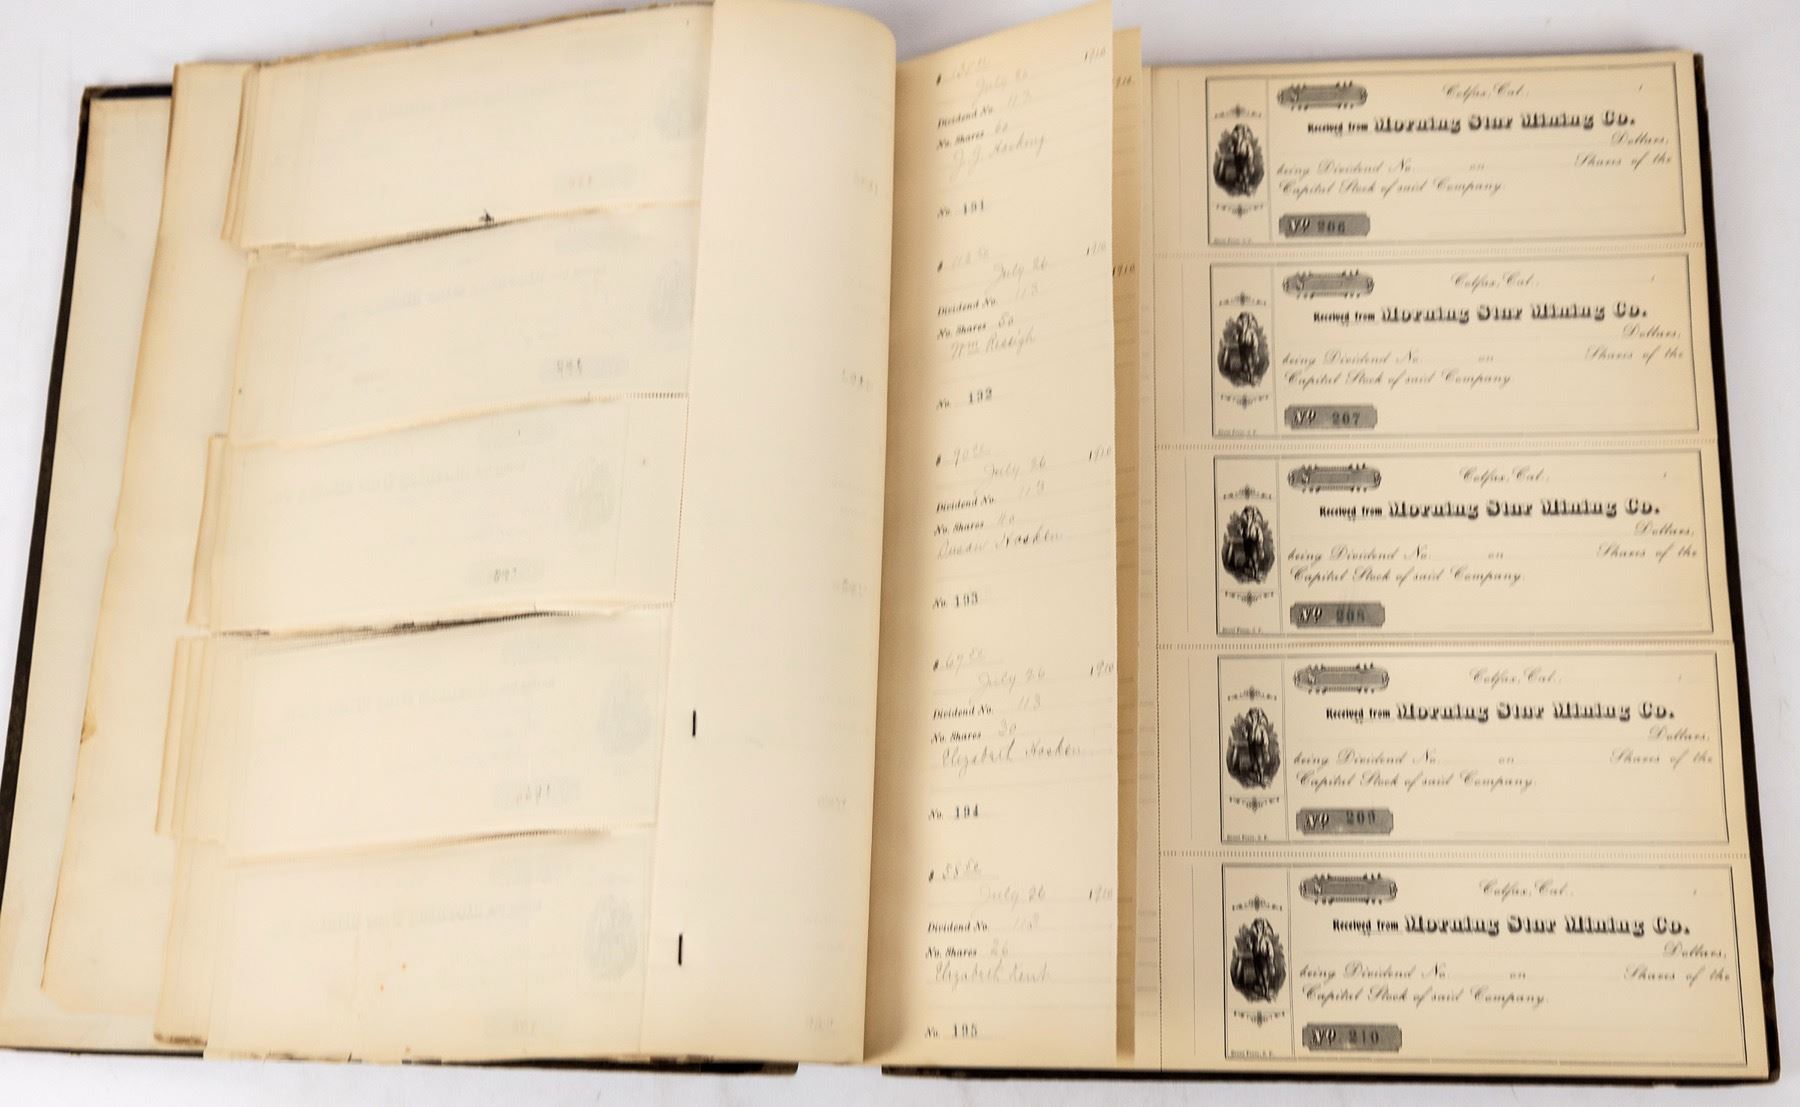 July 26 1910
Dividend No. 113
No. Shares 60
J. J. Hocking
No. 191
$
July 26 1910
Dividend No. 113
No. Shares 50
Wm
No. 192
$ 90
July 26 1910
Dividend No. 113
No. Shares 40
Susan Hosken
No. 193
$ 67
July 26 1910
Dividend No. 113
No. Shares 30
Elizabeth Hosken
No. 194
$ 58
July 26 1910
Dividend No. 113
No. Shares 26
Elizabeth Kent
No. 195
1910
1910
$ Colfax, Cal.
Received from Morning Star Mining Co.
Dollars,
being Dividend No. on Shares of the
Capital Stock of said Company.
No 206
$ Colfax, Cal.
Received from Morning Star Mining Co.
Dollars,
being Dividend No. on Shares of the
Capital Stock of said Company.
No 207
$ Colfax, Cal.
Received from Morning Star Mining Co.
Dollars,
being Dividend No. on Shares of the
Capital Stock of said Company.
No 208
$ Colfax, Cal.
Received from Morning Star Mining Co.
Dollars,
being Dividend No. on Shares of the
Capital Stock of said Company.
No 209
$ Colfax, Cal.
Received from Morning Star Mining Co.
Dollars,
being Dividend No. on Shares of the
Capital Stock of said Company.
No 210